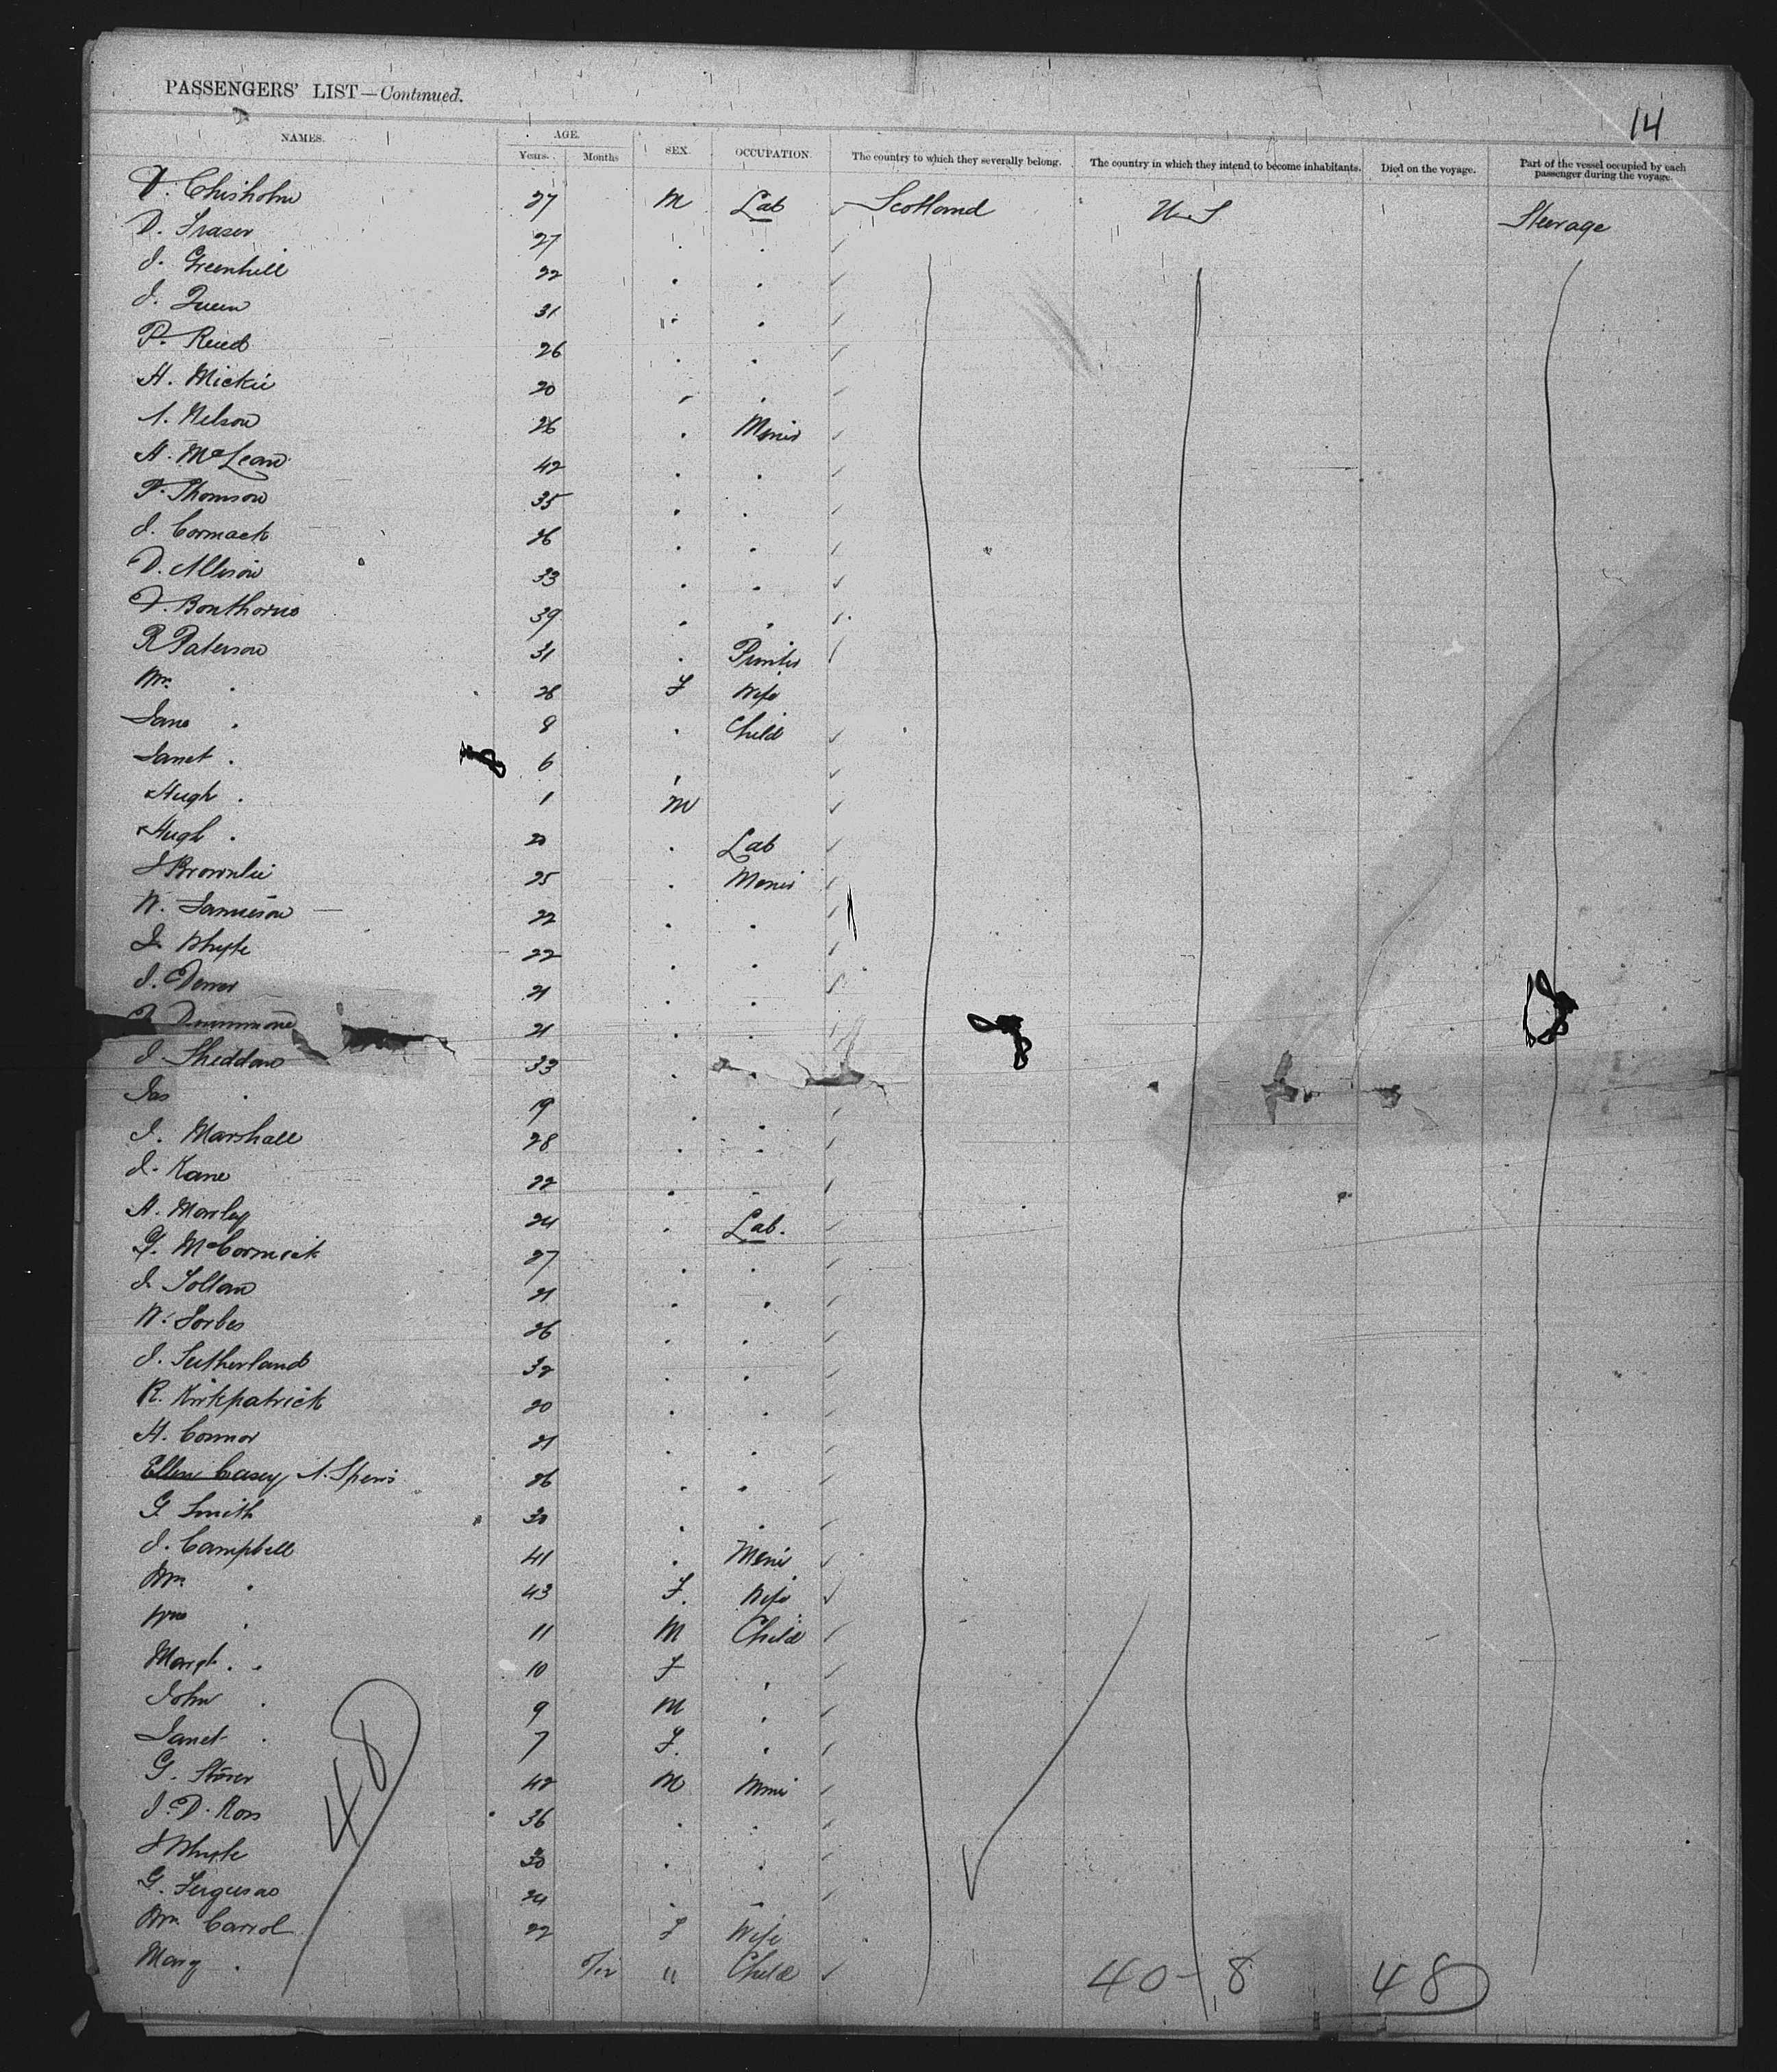 14
PASSENGERS' LIST—Continued.
NAMES. AGE. SEX. OCCUPATION. The country to which they severally belong. The country in which they intend to become inhabitants. Died on the voyage. Part of the vessel occupied by each passenger during the voyage.
Years. Months
Chisholm 27 M Lab Scotland U.S Steerage
D. Fraser 27 . .
J. Greenhill 22 . .
J. Queen 31 . .
P. Reied 26 . .
H. Mickie 20 . .
A. Nelson 26 . Miner
A. McLean 42 . .
Thomson 35 . .
J. Cormack 26 . .
D. Allison 33 . .
Bonthorne 39 . .
R Paterson 31 . Printer
Mrs . 26 F Wife
Jane . 8 . Child
Janet . 6 .
Hugh . 1 M
Hugh . 20 . Lab
J Brownlie 25 . Miner
W. Jamieson 22 . .
J. Whyte 22 . .
J. 21 . .
Drummond 21 . .
J. Sheddon 33 . .
Jas . 19 . .
J. Marshall 28 . .
J. Kane 22 . .
A. Morley 24 . Lab.
McCormick 27 . .
J. 21 . .
W. Forbes 26 . .
J. Sutherland 32 . .
R. Kirkpatrick 20 . .
H. Connor 21 . .
Ellen Casey A. Speirs 26 . .
G Smith 30 . .
J. Campbell 41 . Miner
Mrs . 43 F. Wife
Wm . 11 M Child
Margt. . 10 F .
John . 9 M .
Janet . 7 F. .
G. Storer 42 M Miner
J. D. Ross 36 . .
J Whyte 30 . .
G. Ferguson 24 . .
Mrs Carrol 22 F Wife
Mary . " Child
48
40-8 48